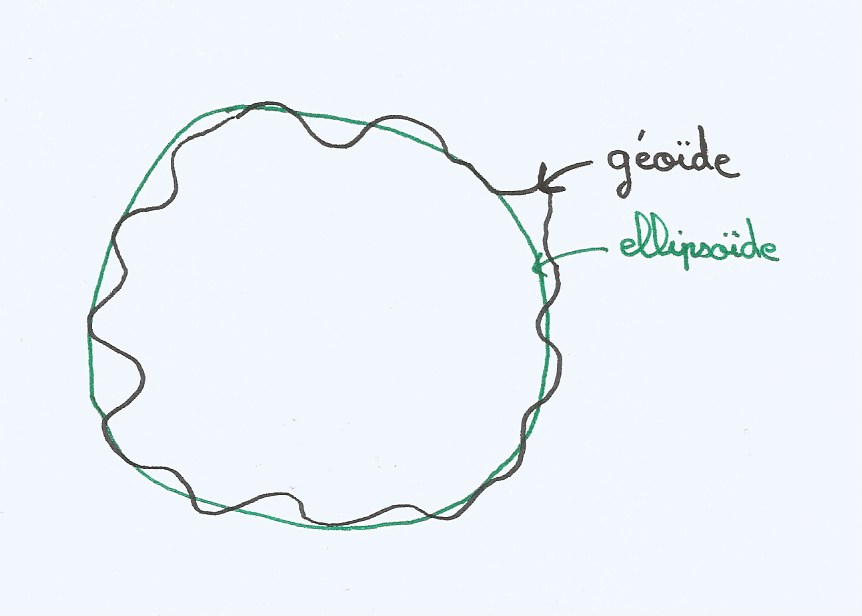 géoïde
ellipsoïde